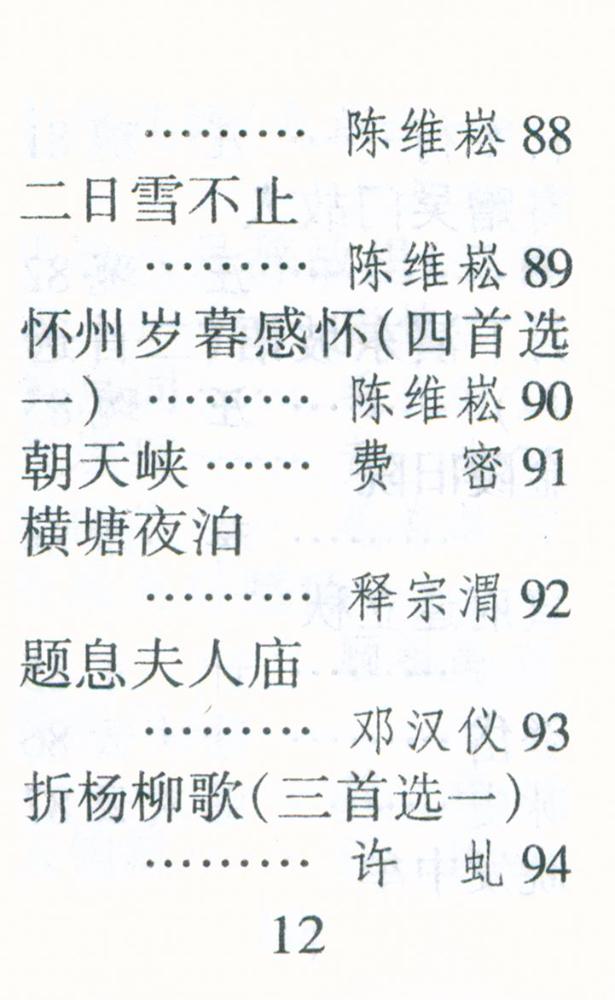 ……… 陈维崧 88
二日雪不止
……… 陈维崧 89
怀州岁暮感怀(四首选
一) ……… 陈维崧 90
朝天峡 …… 费 密 91
横塘夜泊
……… 释宗渭 92
题息夫人庙
……… 邓汉仪 93
折杨柳歌(三首选一)
……… 许 虬 94
12